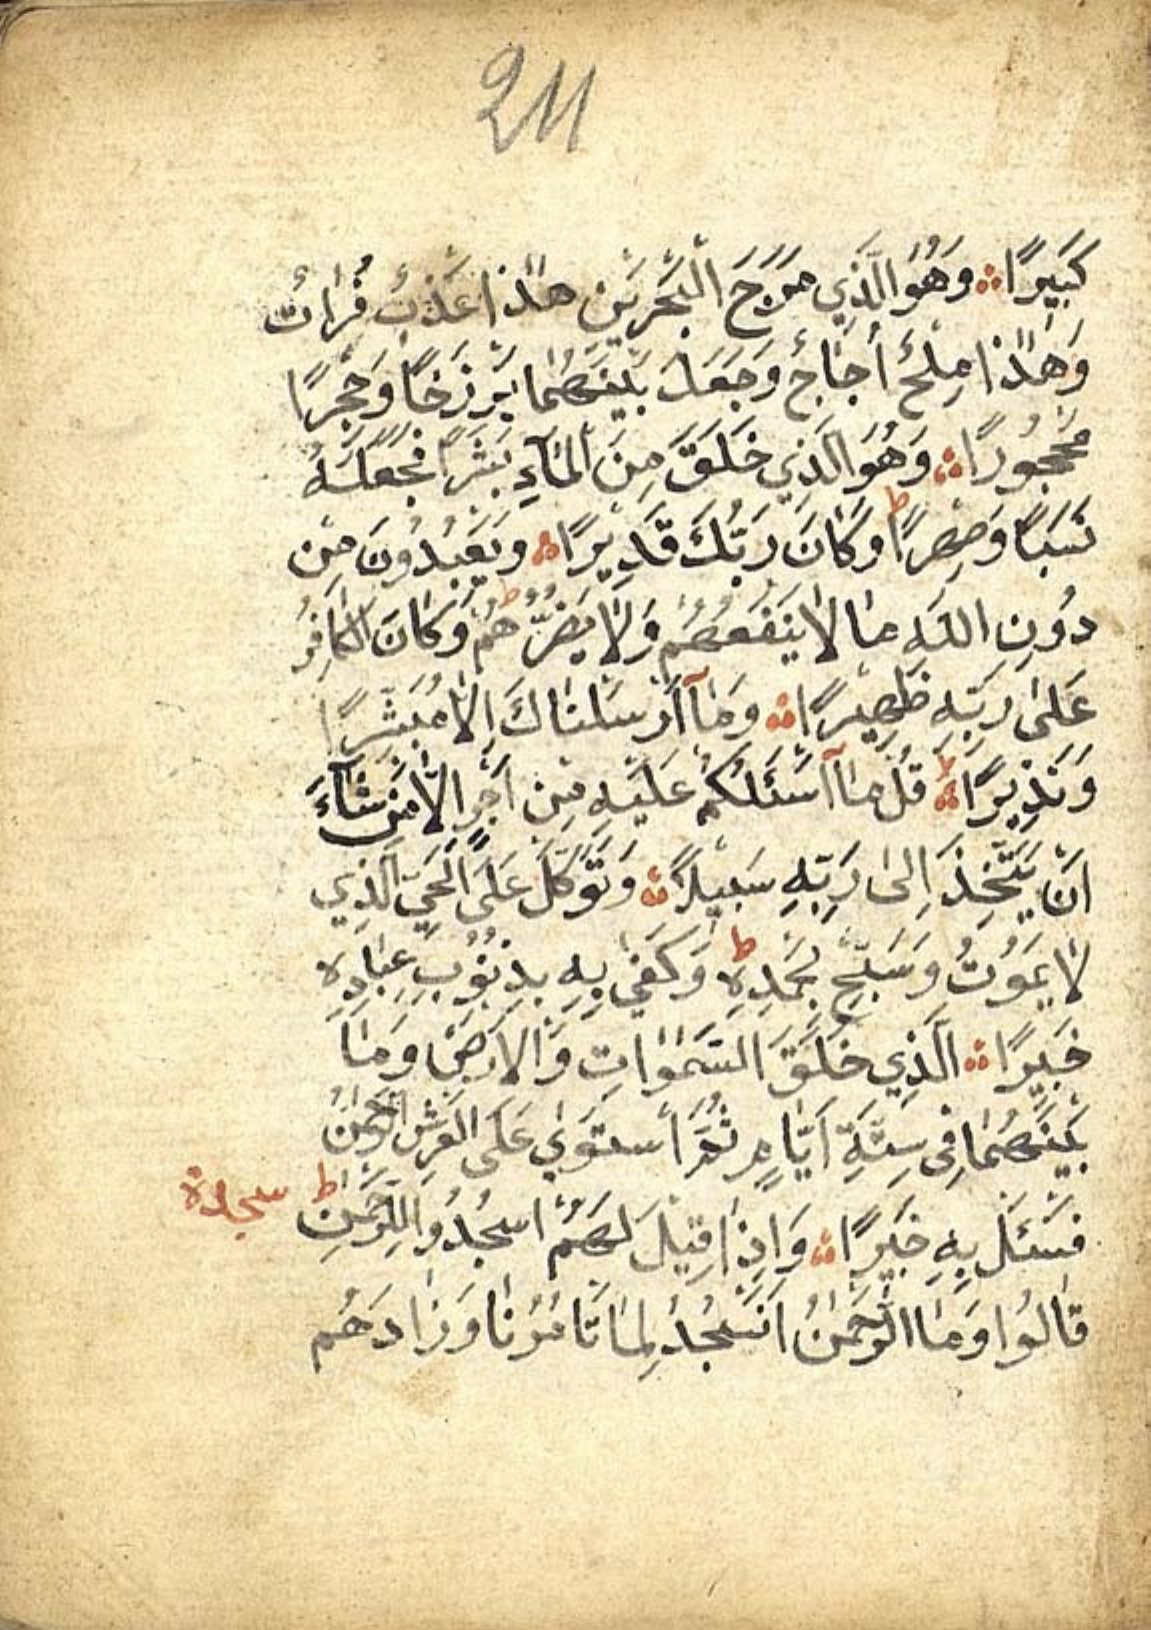 211
كَبِيرًا ۞ وَهُوَ الَّذِي مَرَجَ الْبَحْرَيْنِ هٰذَا عَذْبٌ فُرَاتٌ
وَهٰذَا مِلْحٌ أُجَاجٌ وَجَعَلَ بَيْنَهُمَا بَرْزَخًا وَحِجْرًا
مَحْجُورًا ۞ وَهُوَ الَّذِي خَلَقَ مِنَ الْمَآءِ بَشَرًا فَجَعَلَهُ
نَسَبًا وَصِهْرًا ط وَكَانَ رَبُّكَ قَدِيرًا ۞ وَيَعْبُدُونَ مِنْ
دُونِ اللّٰهِ مَا لَا يَنْفَعُهُمْ وَلَا يَضُرُّهُمْ ط وَكَانَ الْكَافِرُ
عَلٰى رَبِّهِ ظَهِيرًا ۞ وَمَآ اَرْسَلْنَاكَ اِلَّا مُبَشِّرًا
وَنَذِيرًا ۞ قُلْ مَآ اَسْئَلُكُمْ عَلَيْهِ مِنْ اَجْرٍ اِلَّا مَنْ شَآءَ
اَنْ يَتَّخِذَ اِلٰى رَبِّهِ سَبِيلًا ۞ وَتَوَكَّلْ عَلَى الْحَيِّ الَّذِي
لَا يَمُوتُ وَسَبِّحْ بِحَمْدِهِ ط وَكَفٰي بِهِ بِذُنُوبِ عِبَادِهِ
خَبِيرًا ۞ الَّذِي خَلَقَ السَّمٰوَاتِ وَالْاَرْضَ وَمَا
بَيْنَهُمَا فِى سِتَّةِ اَيَّامٍ ثُمَّ اسْتَوٰي عَلَى الْعَرْشِ الرَّحْمٰنُ
فَسْئَلْ بِهِ خَبِيرًا ۞ وَاِذَا قِيلَ لَهُمُ اسْجُدُوا لِلرَّحْمٰنِ ط سجدة
قَالُوا وَمَا الرَّحْمٰنُ اَنَسْجُدُ لِمَا تَأْمُرُنَا وَزَادَهُمْ